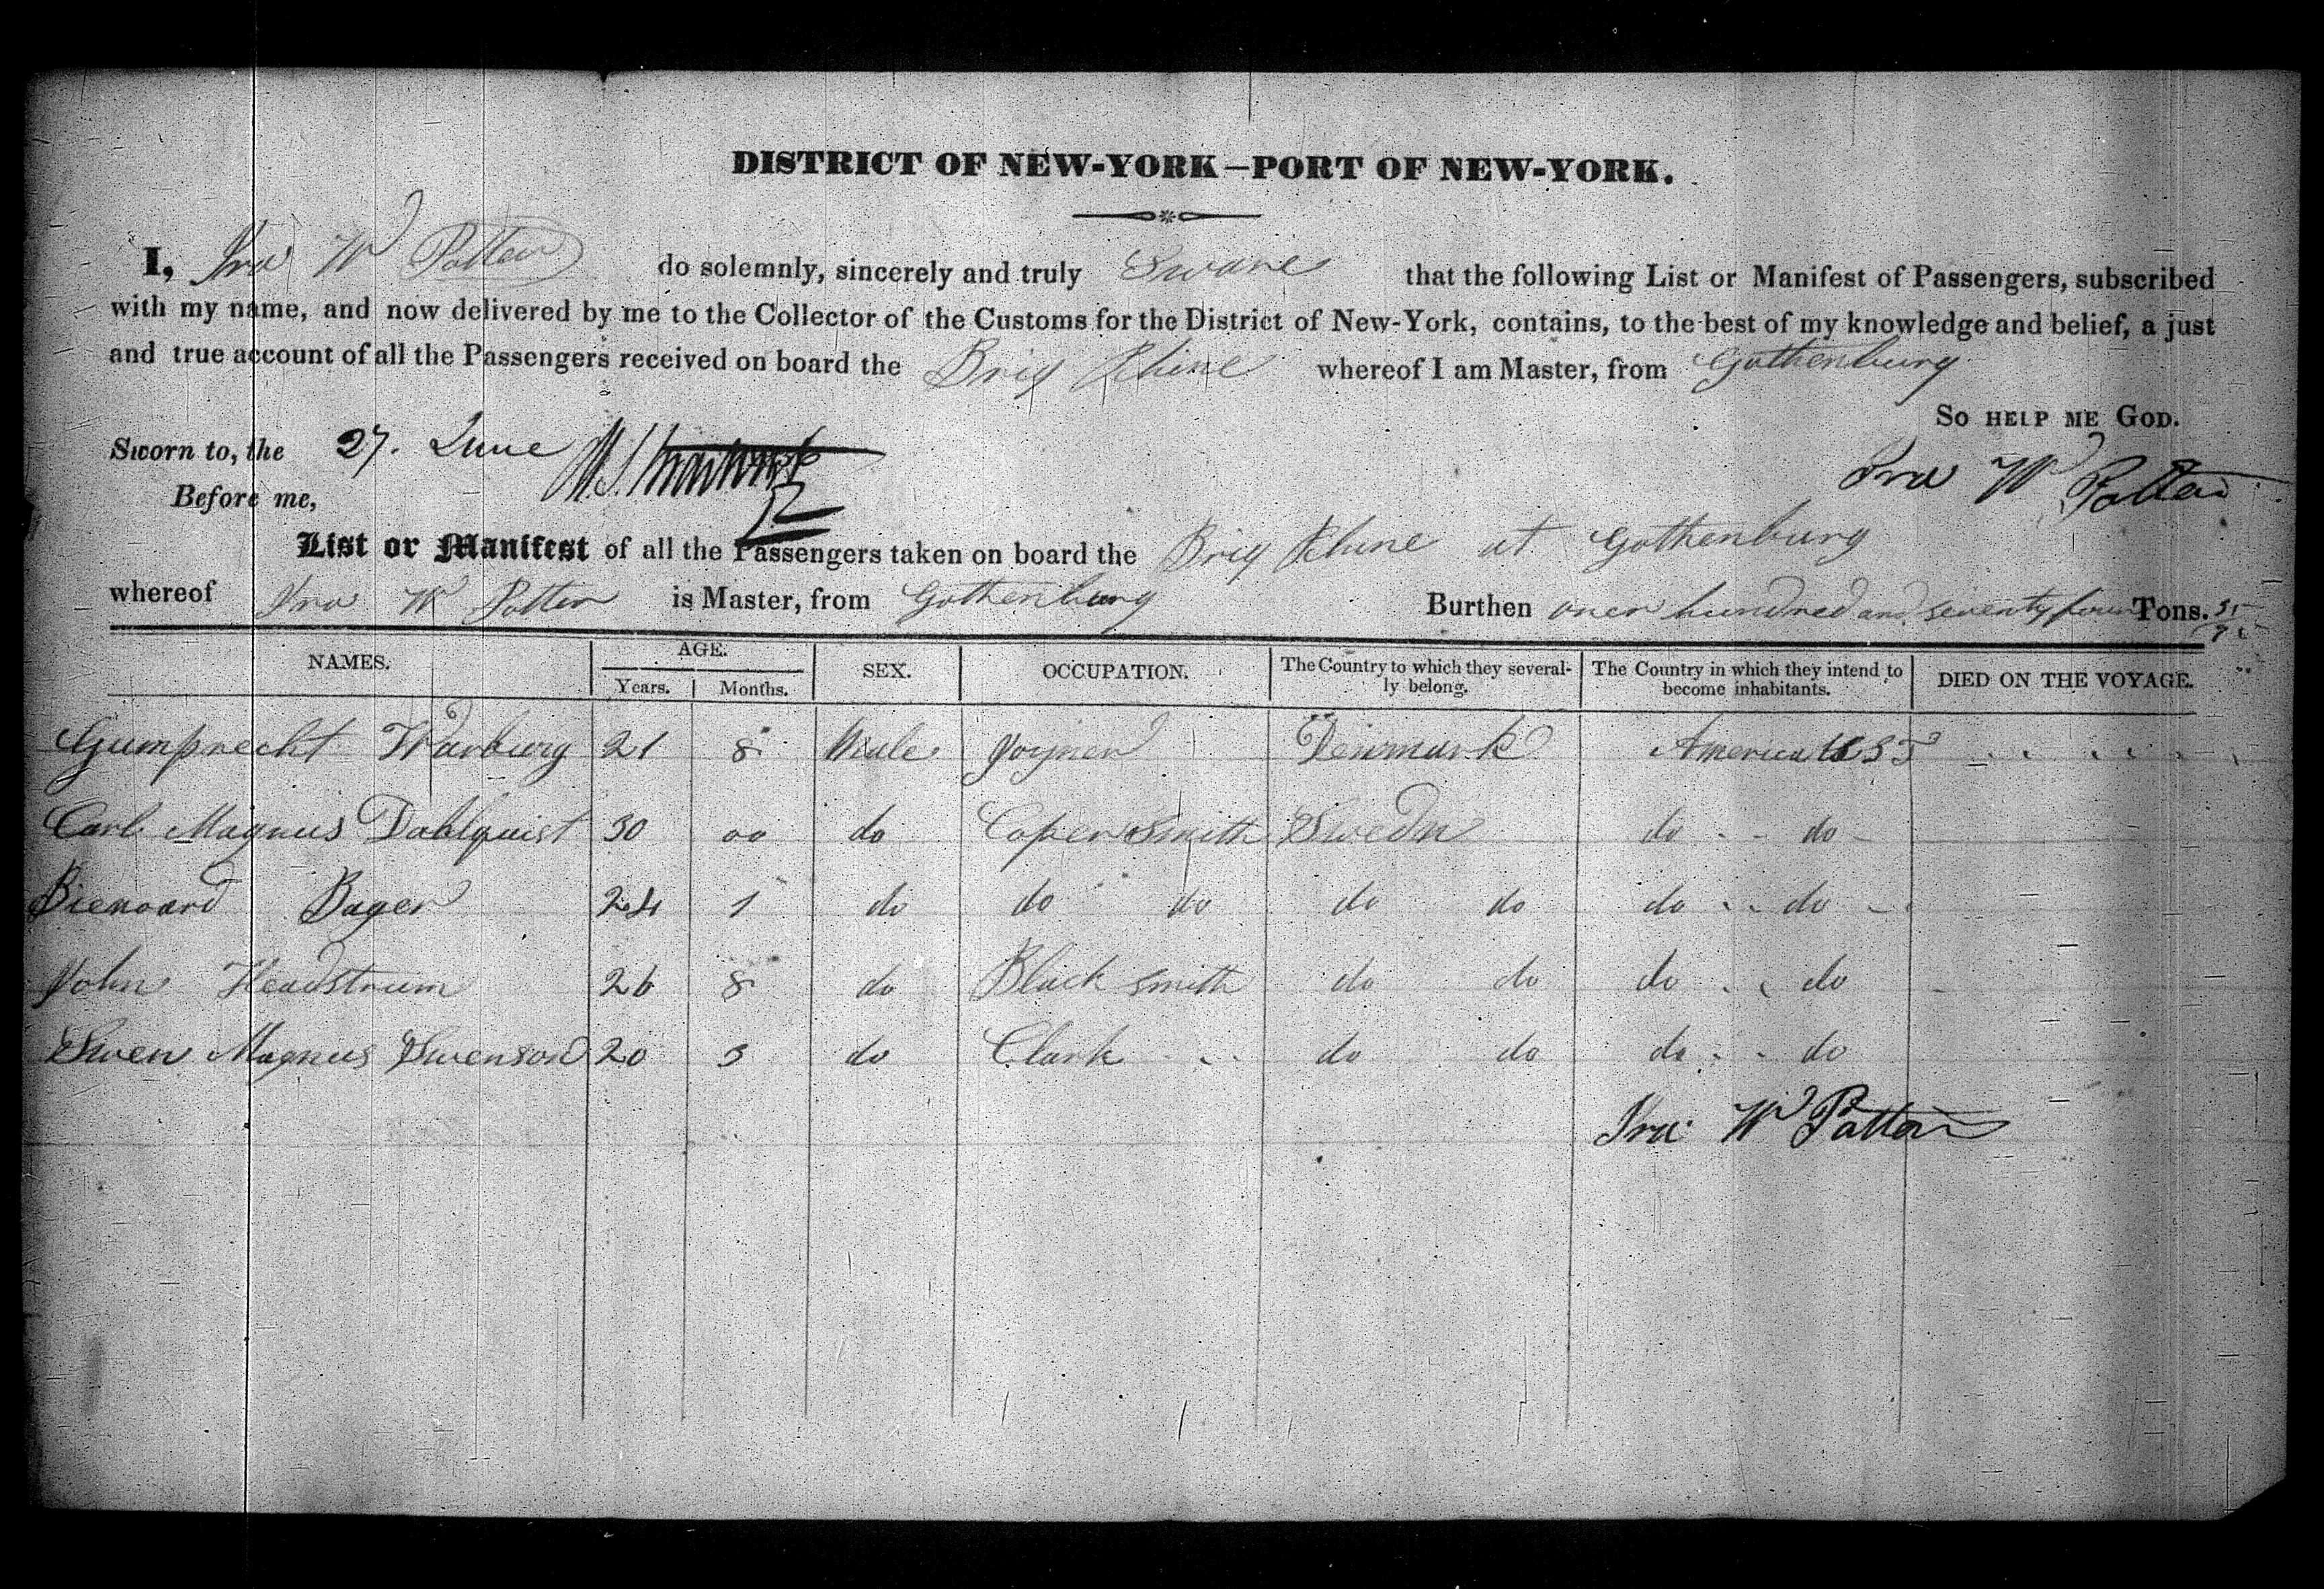 DISTRICT OF NEW-YORK—PORT OF NEW-YORK.
I, Ira W Potter do solemnly, sincerely and truly Sware that the following List or Manifest of Passengers, subscribed
with my name, and now delivered by me to the Collector of the Customs for the District of New-York, contains, to the best of my knowledge and belief, a just
and true account of all the Passengers received on board the Brig Rhine whereof I am Master, from Gothenburg
SO HELP ME GOD.
Sworn to, the 27. June
Ira W Potter
Before me,
List or Manifest of all the Passengers taken on board the Brig Rhine at Gothenburg
whereof Ira W Potter is Master, from Gothenburg Burthen one hundred and seventy four Tons.
NAMES. AGE. SEX. OCCUPATION. The Country to which they several- The Country in which they intend to DIED ON THE VOYAGE.
Years. Months. ly belong. become inhabitants.
Gumprecht Warburg 21 8 Male Joyner Denmark America
Carl Magnus Dahlquist 30 00 do Coper Smith Sweden do do
Bager 24 1 do do do do do do do
John Headstrum 26 8 do Black smith do do do do
Swen Magnus Swenson 20 3 do Clark do do do do
Ira W Potter